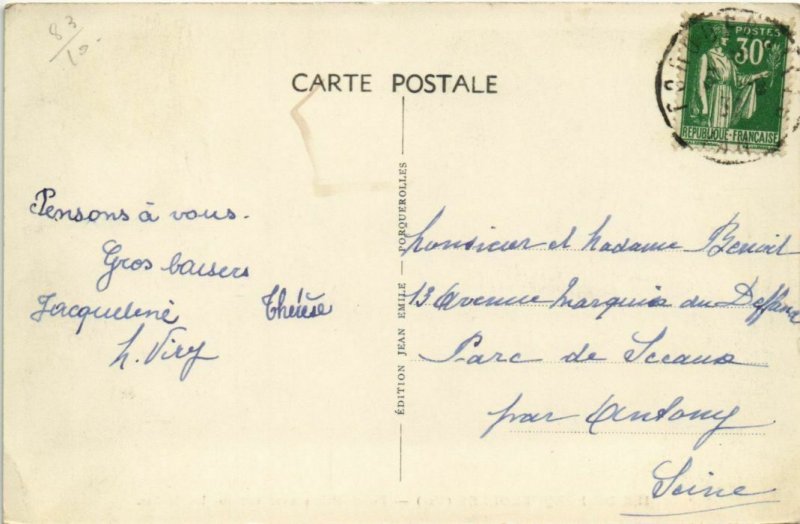 83
10.
CARTE POSTALE
POSTES
30c
RÉPUBLIQUE-FRANÇAISE
Pensons à vous.
Gros baisers
Jacqueline Thérèse
h. Viry
ÉDITION JEAN EMILE – PORQUEROLLES
Monsieur et Madame Benoit
13 Avenue Marquis du Deffand
Parc de Sceaux
par Antony
Seine